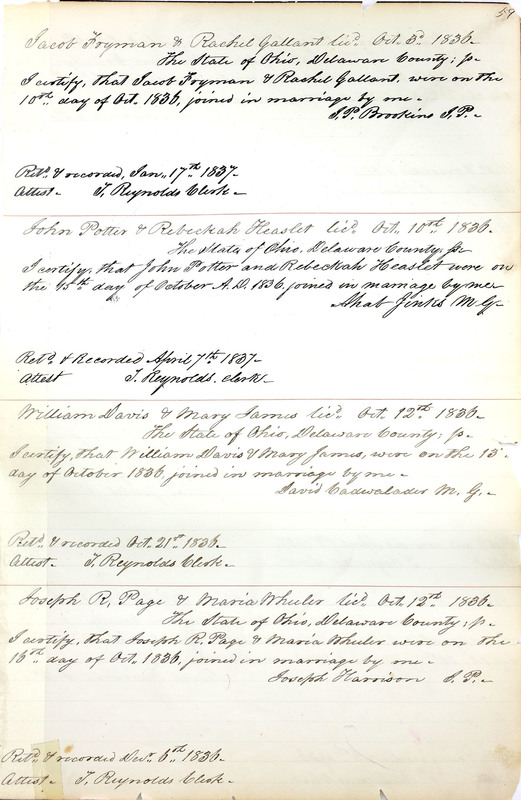 59
Jacob Fryman & Rachel Gallant licd. Oct. 5th 1836.
The State of Ohio, Delaware County; ss.
I certify, that Jacob Fryman & Rachel Gallant, were on the
10th day of Oct. 1836, joined in marriage by me-
S. P. Brookins J. P.-
Retd. & recorded, Jan. 17th 1837-
Attest- T. Reynolds Clerk-
John Potter & Rebeckah Heaslet licd. Oct. 10th 1836.
The State of Ohio, Delaware County, ss
I certify, that John Potter and Rebeckah Heaslet were on
the 15th day of October A.D. 1836, joined in marriage by me-
Ahab Jinks M. G-
Retd. & Recorded April 7th 1837-
Attest T. Reynolds, clerk-
William Davis & Mary James licd. Oct. 12th 1836.
The State of Ohio, Delaware County; ss.
I certify, that William Davis & Mary James, were on the 13
day of October 1836, joined in marriage by me-
David Cadwalader M. G.-
Retd. & recorded Oct. 21st 1836-
Attest- T. Reynolds Clerk-
Joseph R. Page & Maria Wheeler licd. Oct. 12th 1836-
The State of Ohio, Delaware County; ss.
I certify, that Joseph R. Page & Maria Wheeler were on the
16th day of Oct. 1836, joined in marriage by me-
Joseph Harrison J. P.-
Retd. & recorded Decr. 6th 1836-
Attest- T. Reynolds Clerk-